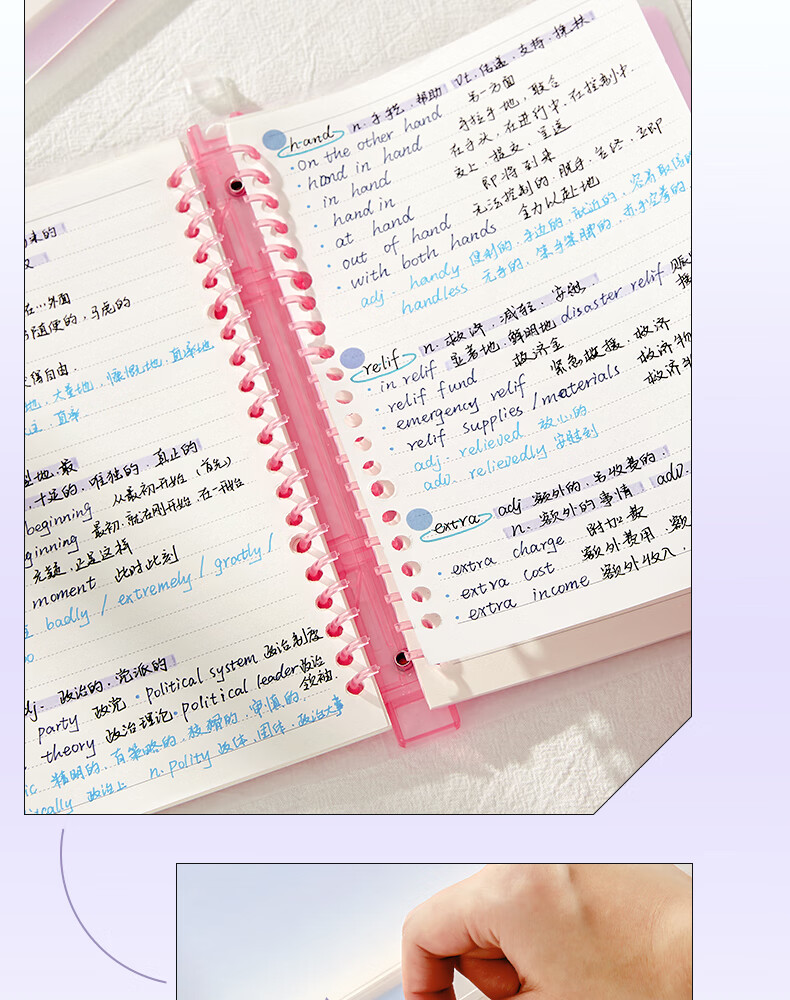 在…外面
随便的，马虎的
自由.
地，大量地，慷慨地，直率地
直率
地，最
十足的，唯独的，真正的
beginning 从最初开始（首先）
ginning 最初，就在刚开始，在一开始
正是这样
moment 此时此刻
badly / extremely / greatly /
dj. 政治的，党派的
party 政党 political system 政治制度
theory 政治理论 political leader 政治领袖.
ic 精明的，有策略的，狡猾的，审慎的，
ically 政治上 n. polity 政体，国体，政治大事
hand n. 手艺，帮助 vt. 传递，支持，搀扶
• on the other hand 另一方面
• hand in hand 手拉手地，联合
• in hand 在手头，在进行中，在控制中.
• hand in 交上，提交，呈送
• at hand 即将到来
• out of hand 无法控制的，脱手，告终，立即
• with both hands 全力以赴地
adj. handy 便利的，手边的，就近的，容易取得的
handless 无手的，笨手笨脚的，赤手空拳的，
relif n. 救济，减轻，安慰.
• in relif 显著地，鲜明地 disaster relif 赈
• relif fund 救济金
• emergency relif 紧急救援，救济
• relif supplies / materials 救济物
adj. relieved 放心的
adv. relievedly 安慰到
extra adj 额外的，另收费的.
n. 额外的事情 adv.
• extra charge 附加费
• extra cost 额外费用，额
• extra income 额外收入，